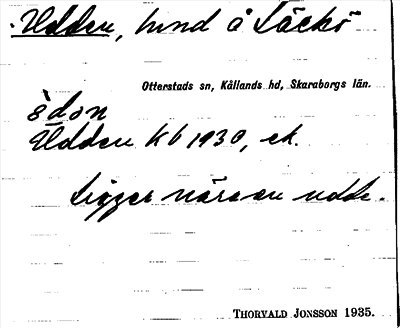 Udden, lund å Läckö
Otterstads sn, Kållands hd, Skaraborgs län.
ùdon
Udden kb 1930, ek.
Ligger nära en udde.
THORVALD JONSSON 1935.